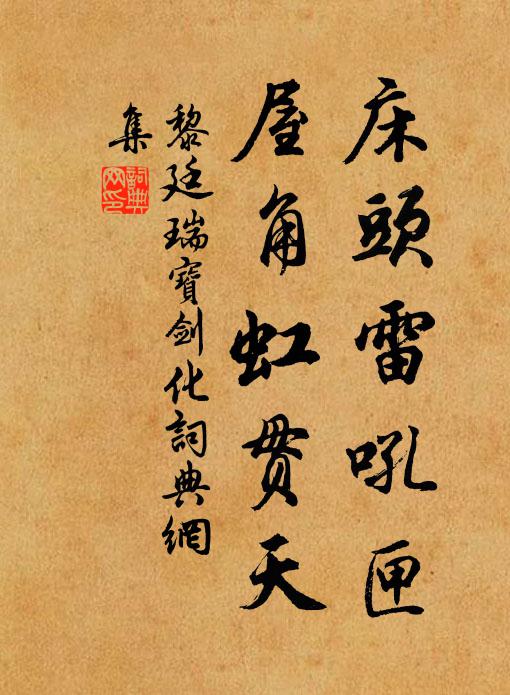 床頭雷吼匣
屋角虹貫天
黎廷瑞寶劍化詞典網
集
詞典網印